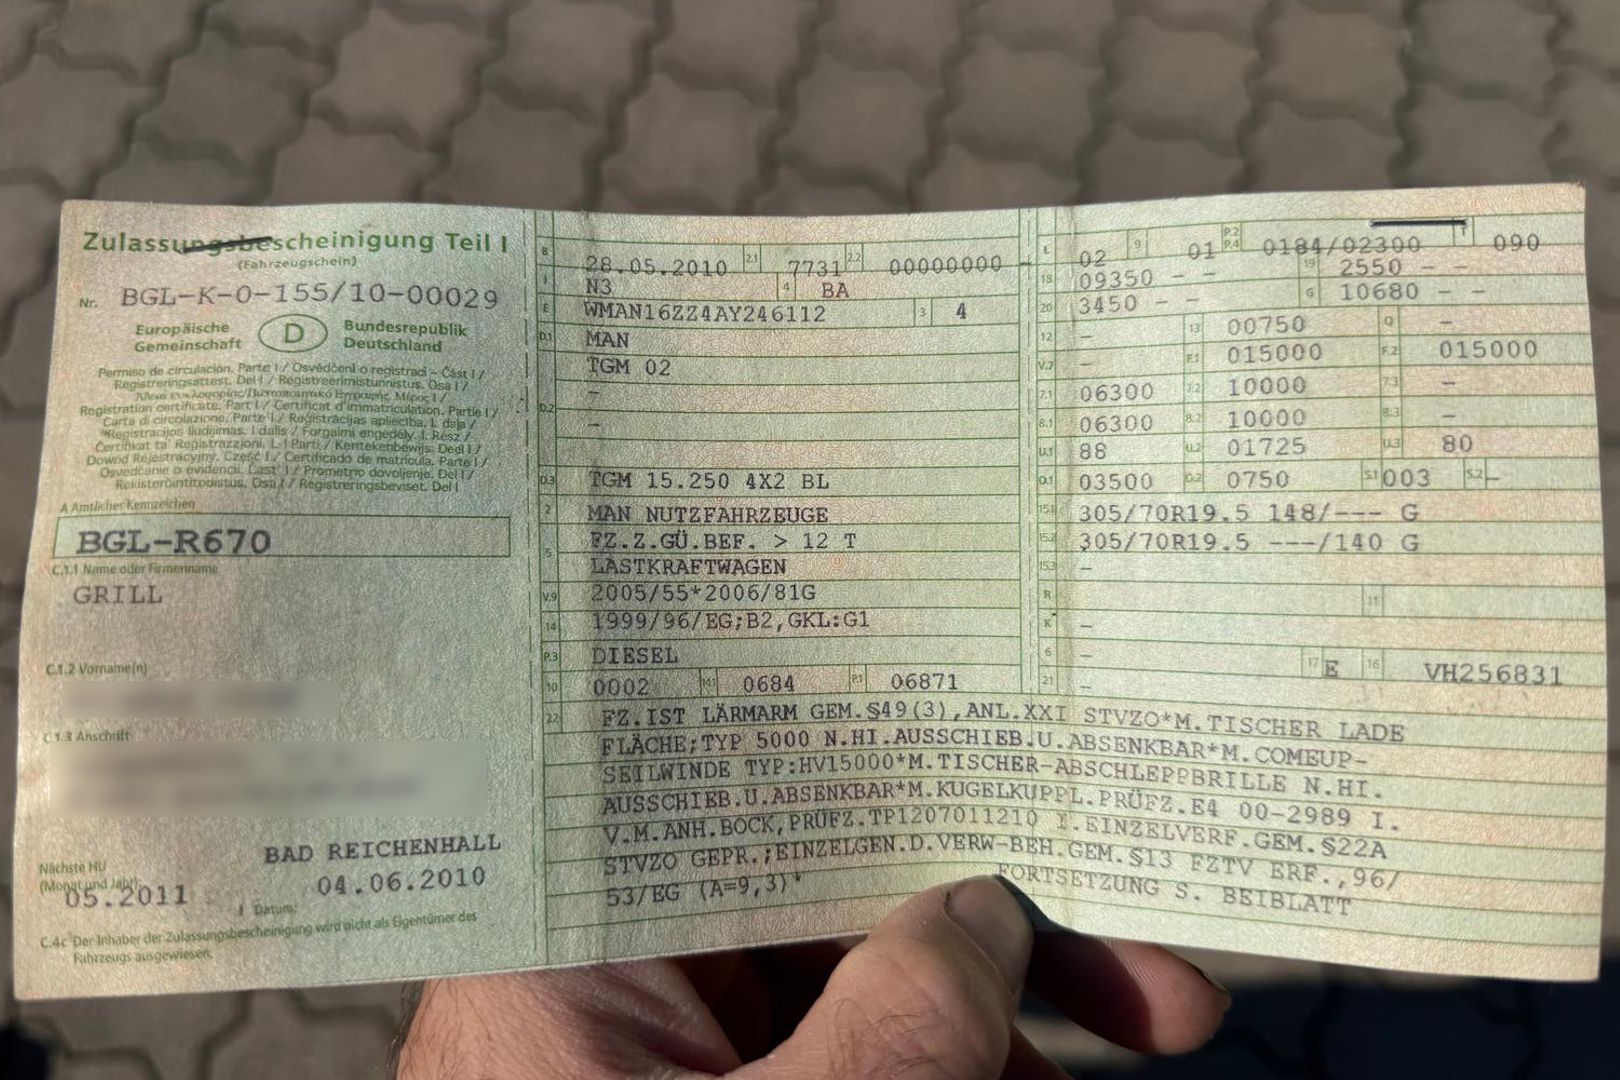 Zulassungsbescheinigung Teil I
(Fahrzeugschein)
Nr. BGL-K-0-155/10-00029
Europäische Gemeinschaft
D
Bundesrepublik Deutschland
Permiso de circulación. Parte I / Osvědčení o registraci – Část I /
Registreringsattest. Del I / Registreerimistunnistus. Osa I /
Registration certificate. Part I / Certificat d'immatriculation. Partie I /
Carta di circolazione. Parte I / Reģistrācijas apliecība. I. daļa /
Registracijos liudijimas. I dalis / Forgalmi engedély. I. Rész /
Ċertifikat ta' Reġistrazzjoni. L-1 Parti / Kentekenbewijs. Deel I /
Dowód Rejestracyjny. Część I / Certificado de matrícula. Parte I /
Osvedčenie o evidencii. Časť I / Prometno dovoljenje. Del I /
Rekisteröintitodistus. Osa I / Registreringsbeviset. Del I
A Amtliches Kennzeichen
BGL-R670
C.1.1 Name oder Firmenname
GRILL
C.1.2 Vorname(n)
C.1.3 Anschrift
Nächste HU
(Monat und Jahr)
05.2011
BAD REICHENHALL
04.06.2010
Datum:
C.4c Der Inhaber der Zulassungsbescheinigung wird nicht als Eigentümer des
Fahrzeugs ausgewiesen.
B 28.05.2010 2.1 7731 2.2 00000000
J N3 4 BA
E WMAN16ZZ4AY246112 3 4
D.1 MAN
TGM 02
–
D.2 –
D.3 TGM 15.250 4X2 BL
2 MAN NUTZFAHRZEUGE
5 FZ.Z.GÜ.BEF. > 12 T
LASTKRAFTWAGEN
V.9 2005/55*2006/81G
14 1999/96/EG;B2,GKL:G1
P.3 DIESEL
10 0002 14.1 0684 P.1 06871
L 02 9 01 P.2 P.4 0184/02300 T 090
18 09350 – – 19 2550 – –
20 3450 – – G 10680 – –
12 – 13 00750 Q –
V.7 – F.1 015000 F.2 015000
7.1 06300 7.2 10000 7.3 –
8.1 06300 8.2 10000 8.3 –
U.1 88 U.2 01725 U.3 80
O.1 03500 O.2 0750 S.1 003 S.2 –
15.1 305/70R19.5 148/--- G
15.2 305/70R19.5 ---/140 G
15.3 –
R 11
K –
6 – 17 E 16 VH256831
21 –
22 FZ.IST LÄRMARM GEM.§49(3),ANL.XXI STVZO*M.TISCHER LADE
FLÄCHE;TYP 5000 N.HI.AUSSCHIEB.U.ABSENKBAR*M.COMEUP-
SEILWINDE TYP:HV15000*M.TISCHER-ABSCHLEPPBRILLE N.HI.
AUSSCHIEB.U.ABSENKBAR*M.KUGELKUPPL.PRÜFZ.E4 00-2989 I.
V.M.ANH.BOCK,PRÜFZ.TP1207011210 I.EINZELVERF.GEM.§22A
STVZO GEPR.;EINZELGEN.D.VERW-BEH.GEM.§13 FZTV ERF.,96/
53/EG (A=9,3)* FORTSETZUNG S. BEIBLATT